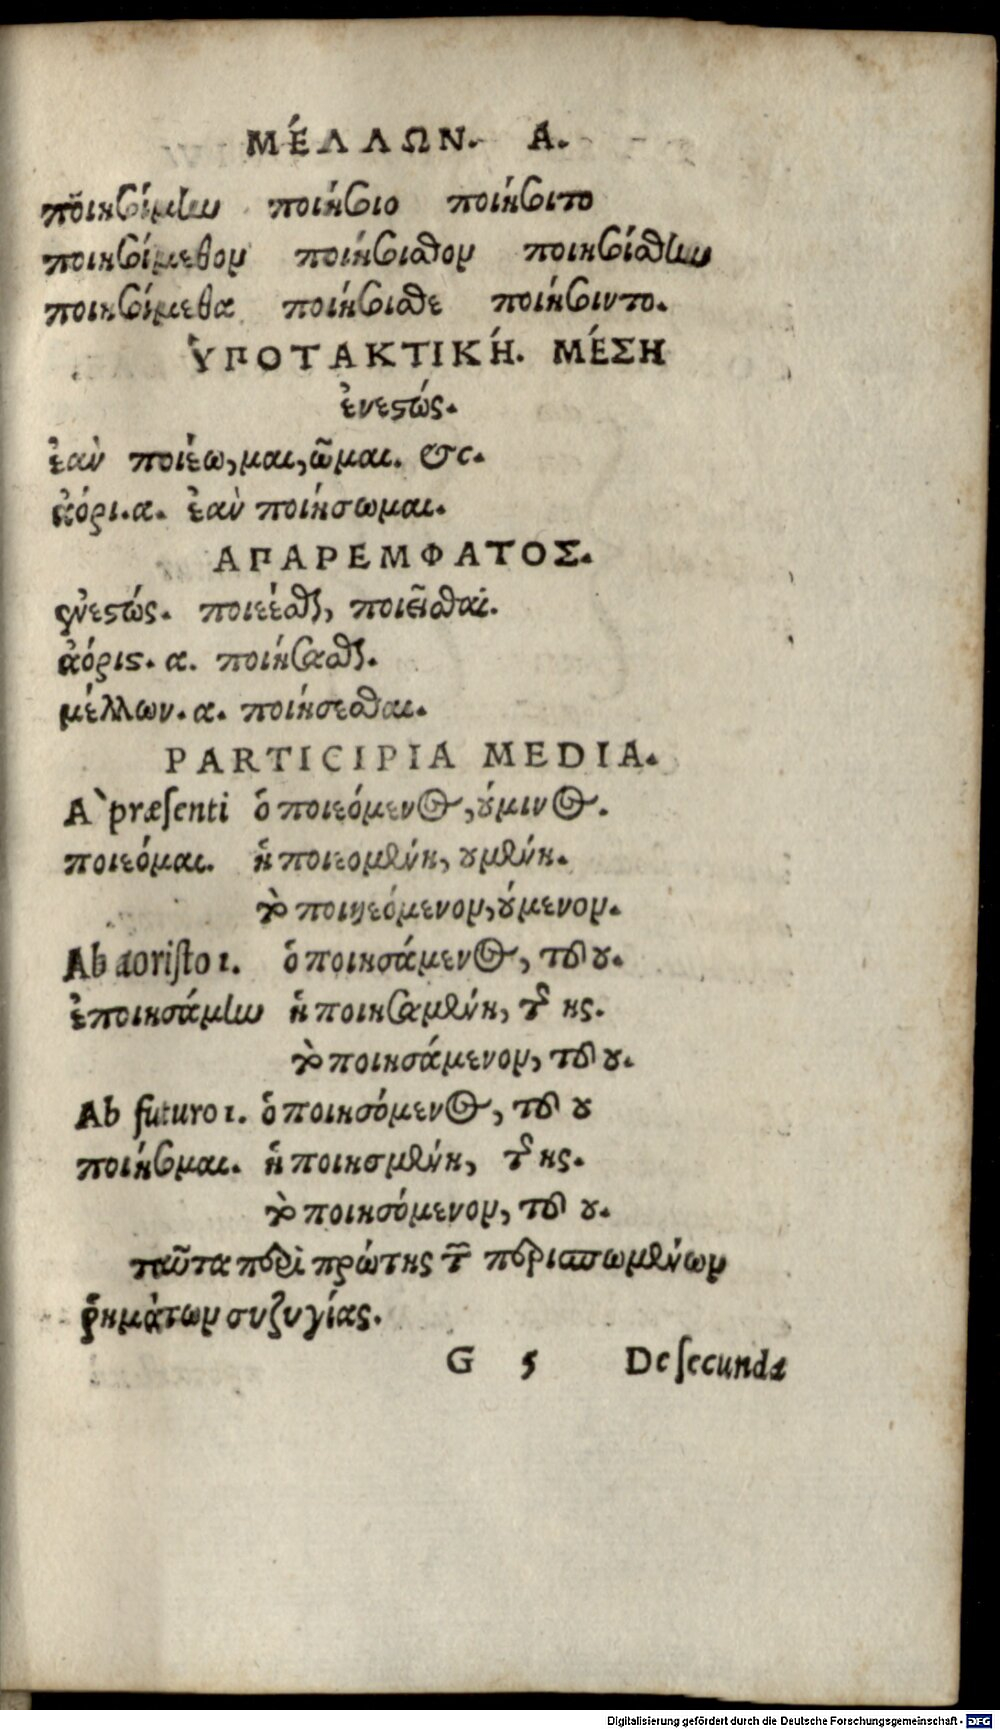 ΜΈΛΛΩΝ. Α.
ποιησίμην ποιήσιο ποιήσιτο
ποιησίμεθον ποιήσισθον ποιησίσθην
ποιησίμεθα ποιήσισθε ποιήσιντο.
ὙΠΟΤΑΚΤΙΚΉ. ΜΈΣΗ
ἐνεστώς.
ἐὰν ποιέω,μαι,ῶμαι. &c.
ἀόρι.α. ἐὰν ποιήσωμαι.
ΑΠΑΡΕΜΦΑΤΟΣ.
ἐνεστώς. ποιέεσθαι, ποιεῖσθαι.
ἀόρισ. α. ποιήσασθαι.
μέλλων. α. ποιήσεσθαι.
PARTICIPIA MEDIA.
A` præſenti ὁ ποιεόμενος, ούμινος.
ποιεόμαι. ἡ ποιεομένη, ουμένη.
τὸ ποιηεόμενον, ούμενον.
Ab aoriſto 1. ὁ ποιησάμενος, τοῦ ου.
ἐποιησάμην ἡ ποιησαμένη, τῆς ης.
τὸ ποιησάμενον, τοῦ ου.
Ab futuro 1. ὁ ποιησόμενος, τοῦ ου
ποιήσομαι. ἡ ποιησμένη, τῆς ης.
τὸ ποιησόμενον, τοῦ ου.
ταῦτα περὶ πρώτης τῶν περισπωμένων
ῥημάτων συζυγίας.
G 5 De ſecunda
Digitalisierung gefördert durch die Deutsche Forschungsgemeinschaft - DFG